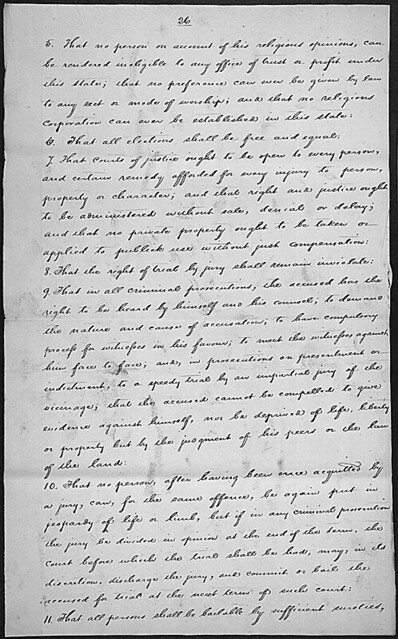 26
5. That no person on account of his religious opinions, can
be rendered ineligible to any office of trust or profit under
this State; that no preference can ever be given by law
to any sect or mode of worship; and that no religious
corporation can ever be established in this state:
6. That all elections shall be free and equal:
7. That courts of justice ought to be open to every person,
and certain remedy afforded for every injury to person,
property or character; and that right and justice ought
to be administered without sale, denial or delay;
and that no private property ought to be taken or
applied to publick use without just compensation:
8. That the right of trial by jury shall remain inviolate:
9. That in all criminal prosecutions, the accused has the
right to be heard by himself and his counsel; to demand
the nature and cause of accusation; to have compulsory
process for witnesses in his favour; to meet the witnesses against
him face to face; and, in prosecutions on presentment or
indictment, to a speedy trial by an impartial jury of the
vicinage; that the accused cannot be compelled to give
evidence against himself, nor be deprived of life, liberty
or property but by the judgment of his peers or the law
of the land:
10. That no person, after having been once acquitted by
a jury, can, for the same offence, be again put in
jeopardy of life or limb, but if in any criminal prosecution
the jury be divided in opinion at the end of the term, the
court before which the trial shall be had, may, in its
discretion, discharge the jury, and commit or bail the
accused for trial at the next term of such court:
11. That all persons shall be bailable by sufficient sureties,